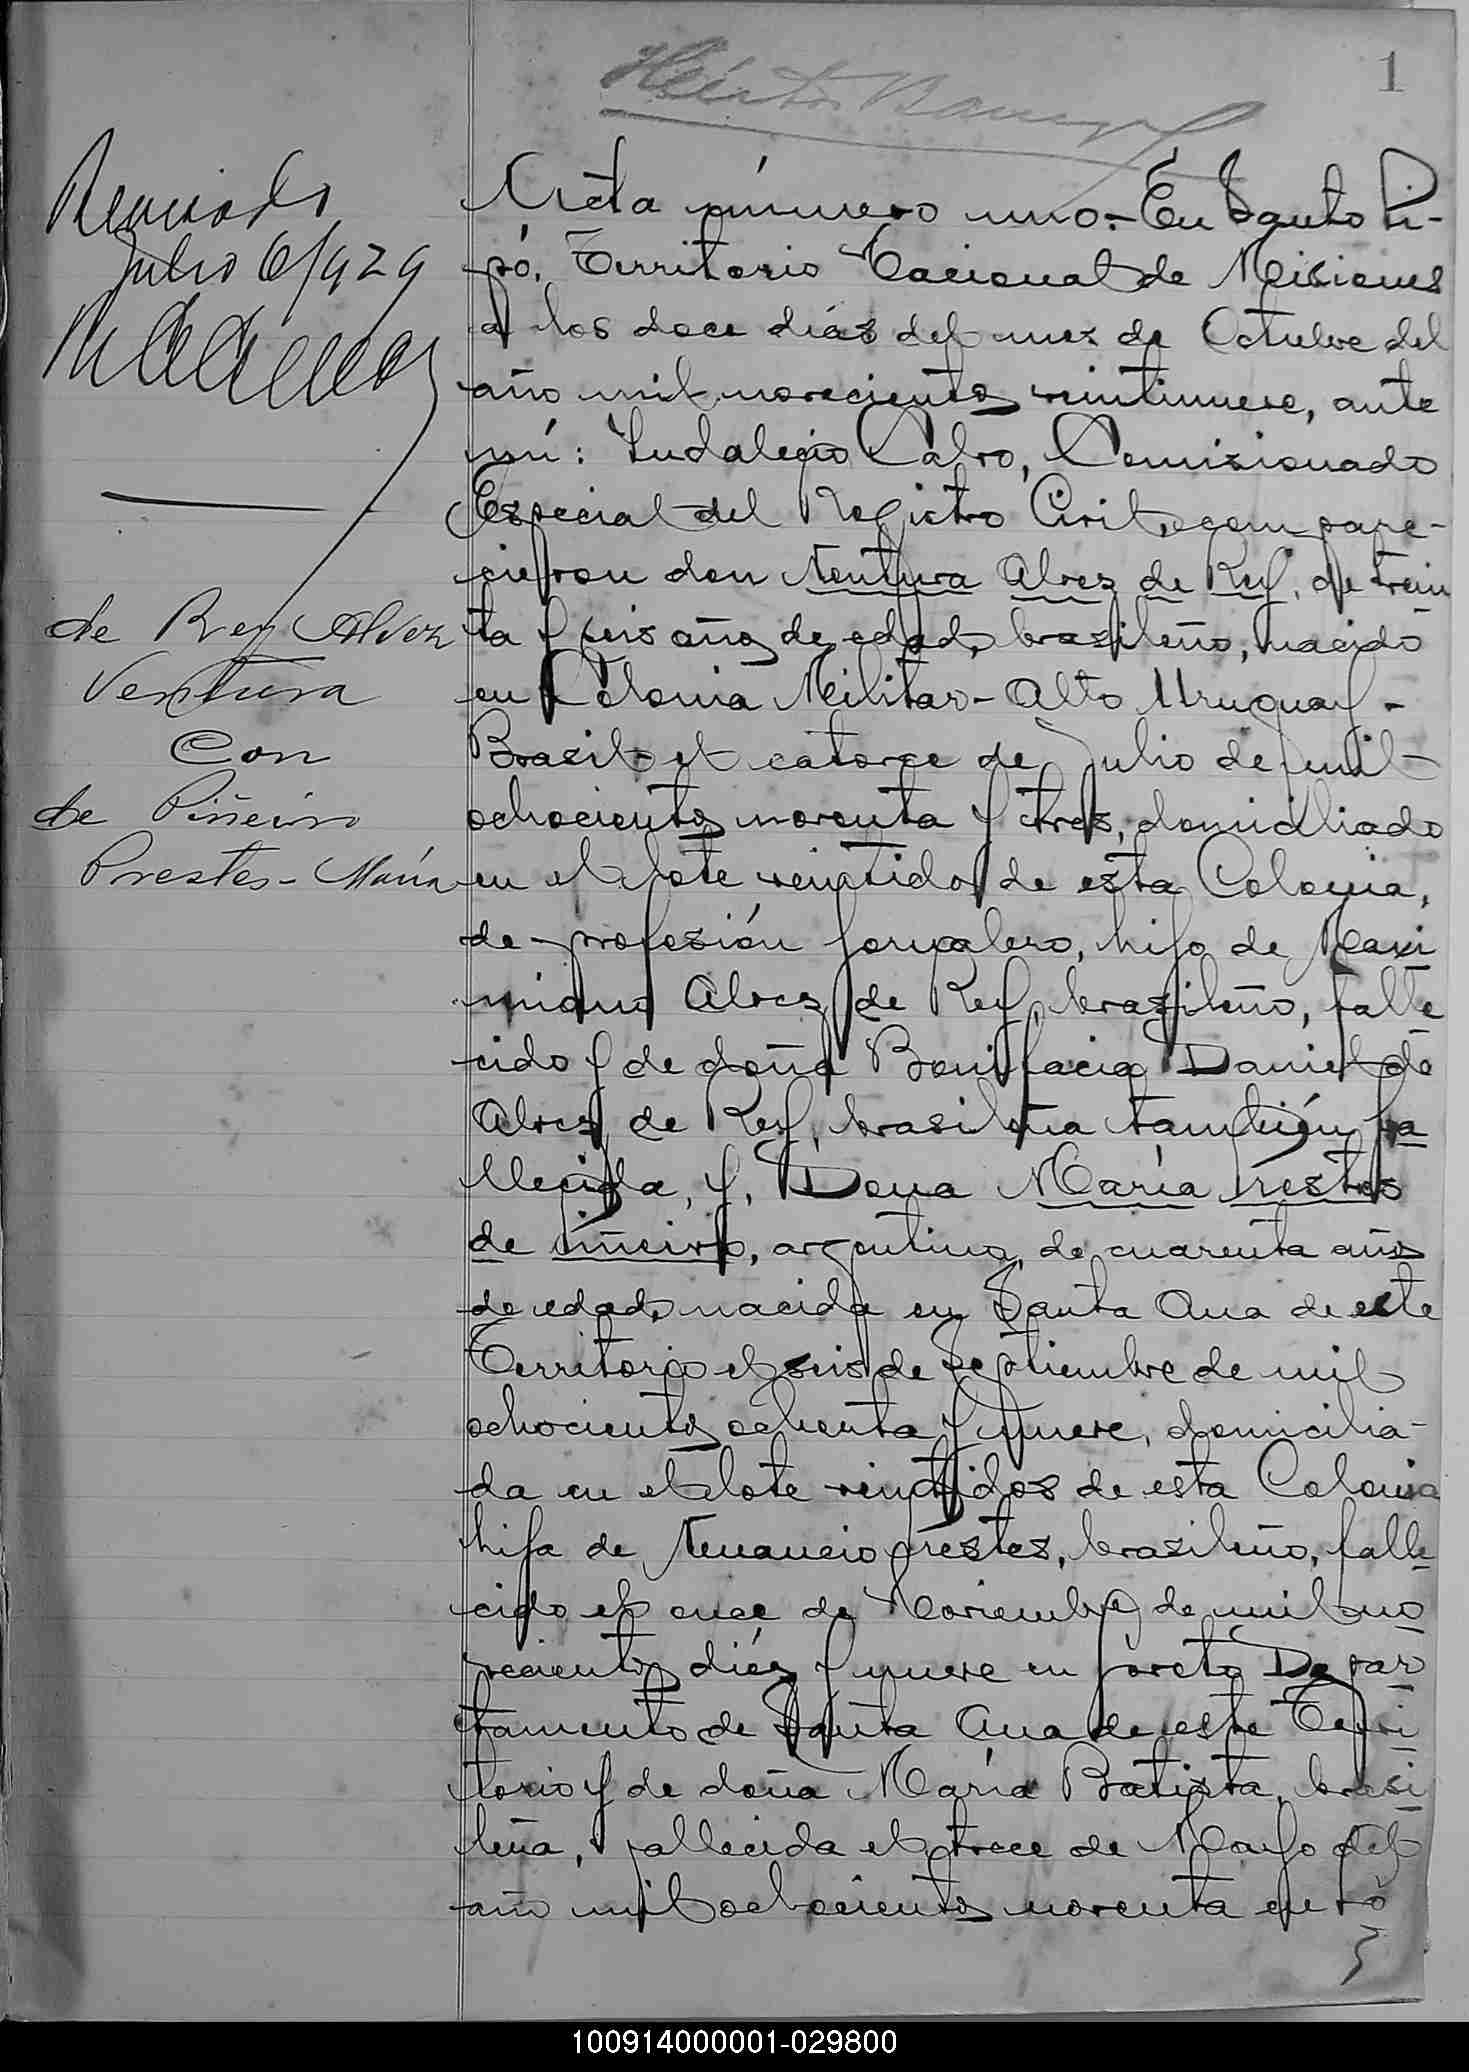 1
Héctor
Revisado
Julio 6/929
de Rey Alvez
Ventura
Con
de Piñeiro
Prestes - María
Acta número uno.- En Santo Pi-
pó, Territorio Nacional de Misiones
a los doce días del mes de Octubre del
año mil novecientos veintinueve, ante
mí: Indalecio Calvo, Comisionado
Especial del Registro Civil, compare-
cieron don Ventura Alves de Rey, de trein
ta y seis años de edad, brasileño, nacido
en Colonia Militar - Alto Uruguay -
Brasil - el catorce de Julio de mil
ochocientos noventa y tres, domiciliado
en el lote veintidos de esta Colonia,
de profesión jornalero, hijo de Maxi
miano Alves de Rey, brasileño, falle
cido y de doña Bonifacia Daniel de
Alves de Rey, brasileña también fa
llecida, y, Dona María Prestes
de Piñeiro, argentina, de cuarenta años
de edad, nacida en Santa Ana de este
Territorio el seis de Septiembre de mil
ochocientos ochenta y nueve, domicilia-
da en el lote veintidos de esta Colonia
hija de Venancio Prestes, brasileño, falle
cido el once de Noviembre de mil no
vecientos diéz y nueve en Loreto Depar
tamento de Santa Ana de este Terri
torio y de doña María Batista, brasi
leña, fallecida el trece de Mayo del
año mil ochocientos noventa y